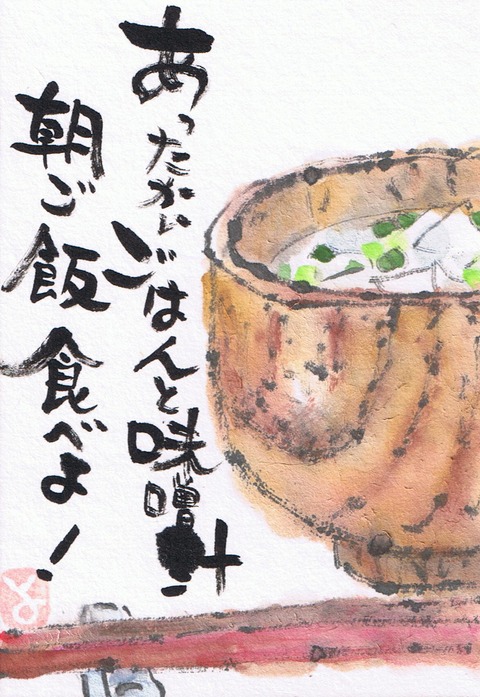 あったかいごはんと味噌汁
朝ご飯食べよ！
と